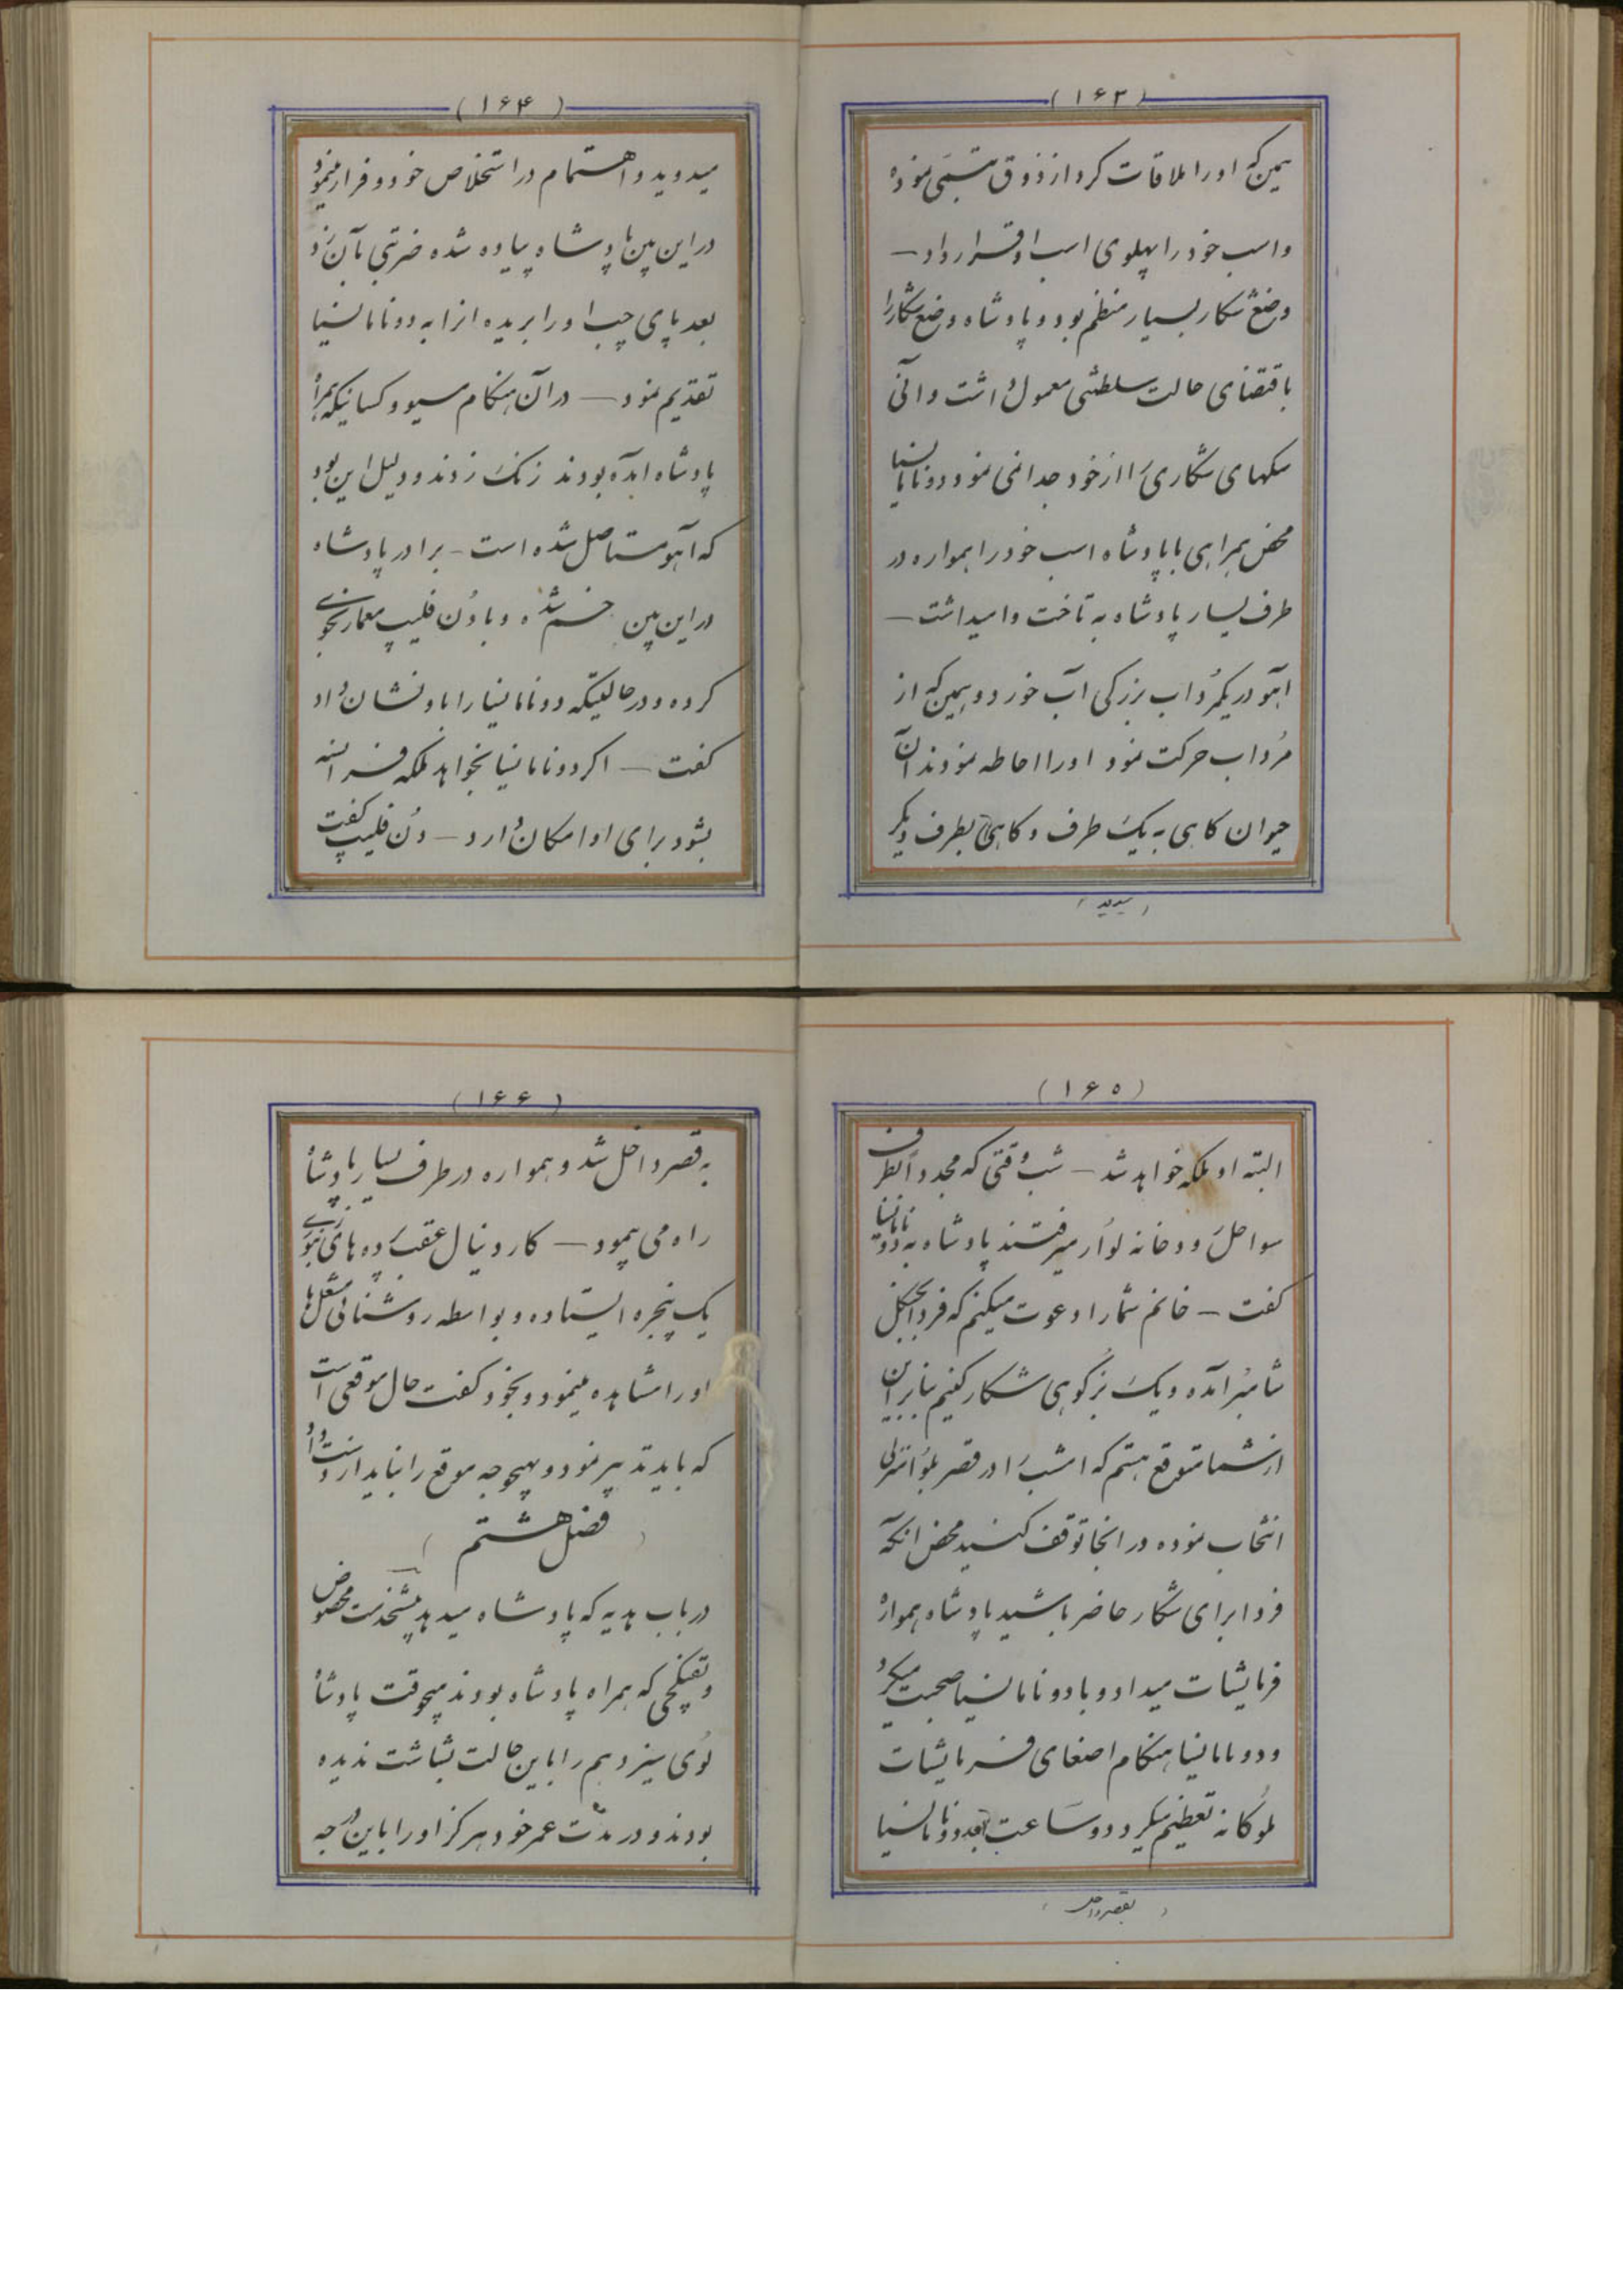 (۱۶۳)
همین که او را ملاقات کرد از ذوق تبسمی نموده
و اسب خود را پهلوی اسب او قرار داد —
وضع شکار بسیار منظم بود و پادشاه وضع شکار را
باقتضای حالت سلطنتی معمول داشت و آنی
سکهای شکاری را از خود جدا نمی نمود دونامانسیا
محض همراهی با پادشاه اسب خود را همواره در
طرف یسار پادشاه به تاخت وامیداشت —
آهو در یکمرداب بزرکی آب خورد و همین که از
مرداب حرکت نمود او را احاطه نمودند آن
حیوان کاهی به یک طرف و کاهی بطرف دیکر
(میدوید)
(۱۶۴)
میدوید و اهتمام در استخلاص خود و فرار مینمود
در این بین ها پادشاه پیاده شده ضربتی بآن زد
بعد پای چپ او را بریده انرا به دونامانسیا
تقدیم نمود — در آن هنکام سیو و کسانیکه همراه
پادشاه آمده بودند زنک زدند و دلیل این بود
که آهو مستاصل شده است - برادر پادشاه
در این بین خم شده و با دُن فلیپ معمار نجوی
کرده و در حالتیکه دونامانسیا را باو نشان داد
کفت — اکر دونامانسیا بخواهد ملکه فرانسه
بشود برای او امکان دارد — دُن فلیپ کفت
(۱۶۵)
البته او ملکه خواهد شد — شب وقتی که مجدداً بطرف
سواحل رودخانه لوآر میرفتند پادشاه به دونامانسیا
کفت — خانم شما را دعوت میکنم که فردا بجنکل
شامبُر آمده و یک بُز کوهی شکار کنیم بنابراین
از شما متوقع هستم که امشب را در قصر بلوا منزلی
انتخاب نموده در انجا توقف کنید محض انکه
فردا برای شکار حاضر باشید پادشاه همواره
فرمایشات میداد و با دونامانسیا صحبت میکرد
و دونامانسیا هنکام اصغای فرمایشات
ملوکانه تعظیم میکرد دو ساعت بعد دونامانسیا
(بقصر داخل)
(۱۶۶)
به قصر داخل شد و همواره در طرف یسار پادشاه
راه می پیمود — کاردینال عقب پرده های
یک پنجره ایستاده و بواسطه روشنائی مشعل ها
او را مشاهده مینمود و بخود کفت حال موقعی است
که باید تدبیر نمود و بهیچوجه موقع را نباید از دست داد
(فصل هشتم)
در باب هدیه که پادشاه میدهد پیشخدمت مخصوص
و تفنکچی که همراه پادشاه بودند هیچوقت پادشاه
لوی سیزدهم را باین حالت بشاشت ندیده
بودند و در مدت عمر خود هرکز او را باین درجه